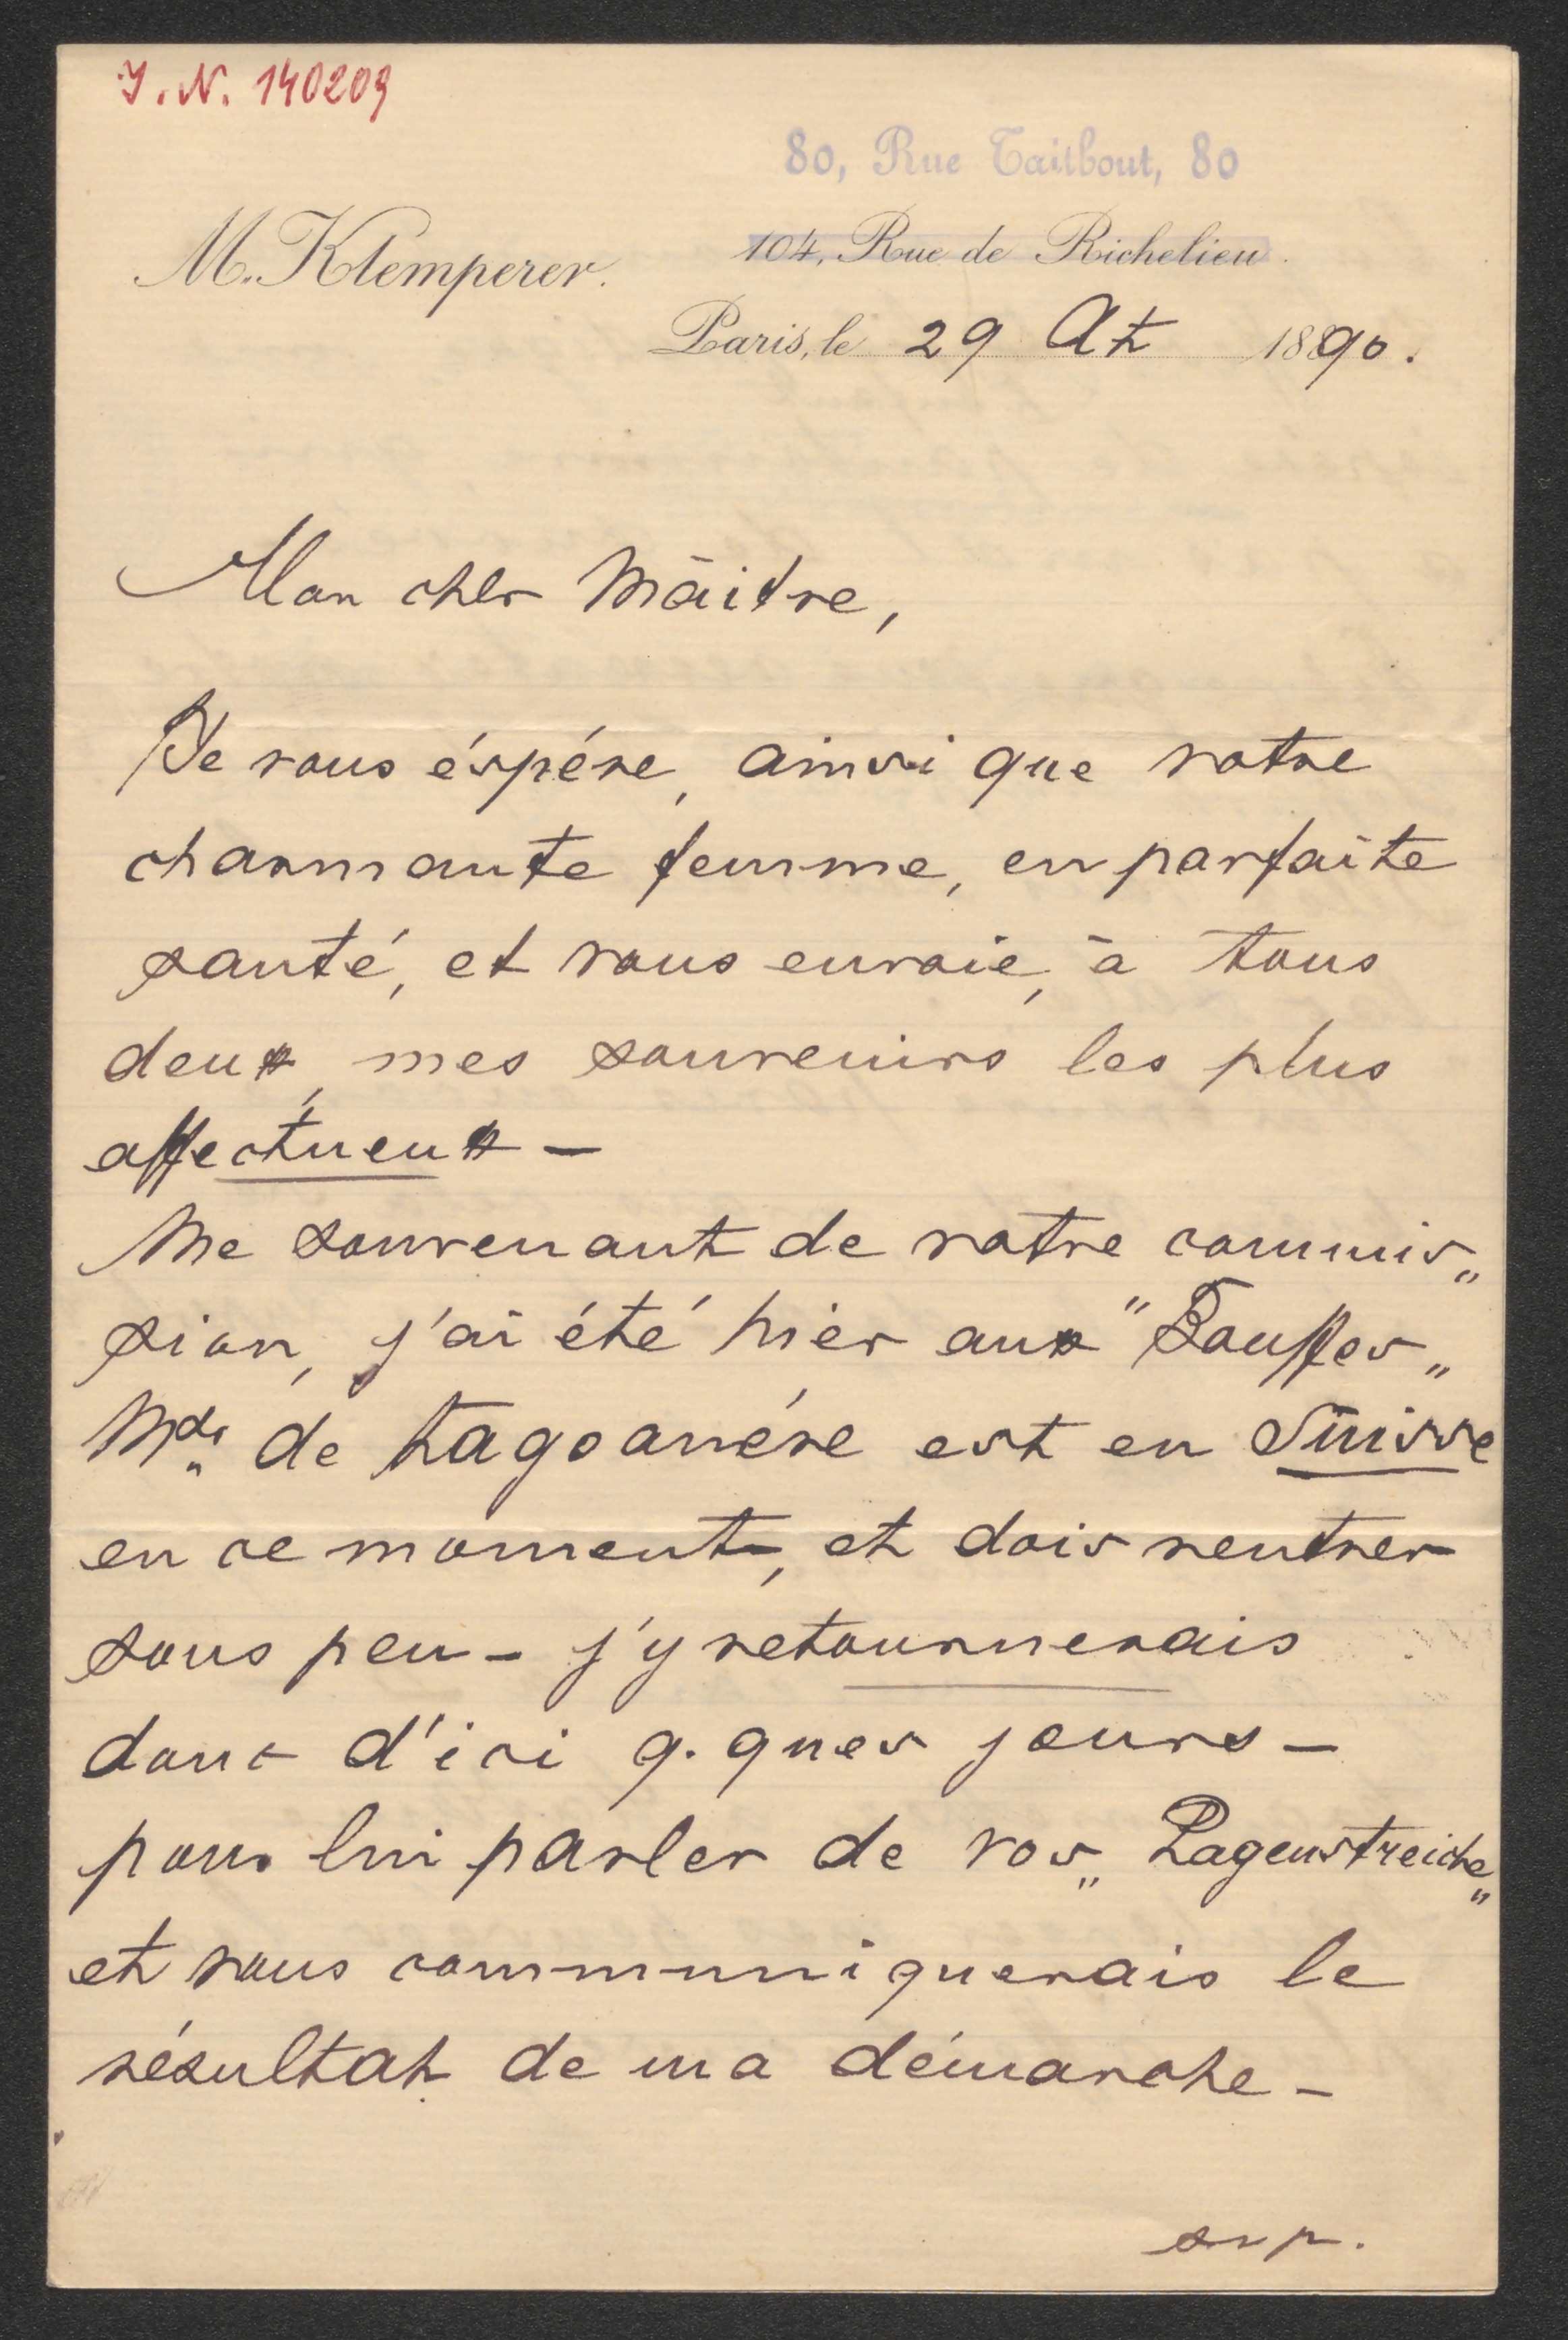 I. N. 140209
80, Rue Taitbout, 80
M. Klemperer.
104, Rue de Richelieu.
Paris, le 29 At 1890.
Mon cher Māitre,
Je vous éspére, ainsi que votre
charmante femme, en parfaite
santé, et vous envoie, à tous
deux, mes souvenirs les plus
affectueux —
Me souvenant de votre commis„
sion, j'ai été hier aux "Bouffes„
Mde de Lagoanére est en Suisse
en ce moment, et dois rentrer
sous peu — j'y retournerais
donc d'ici q. ques jours —
pour lui parler de vos „Pagenstreiche„
et vous communiquerais le
résultat de ma démarche —
svp.